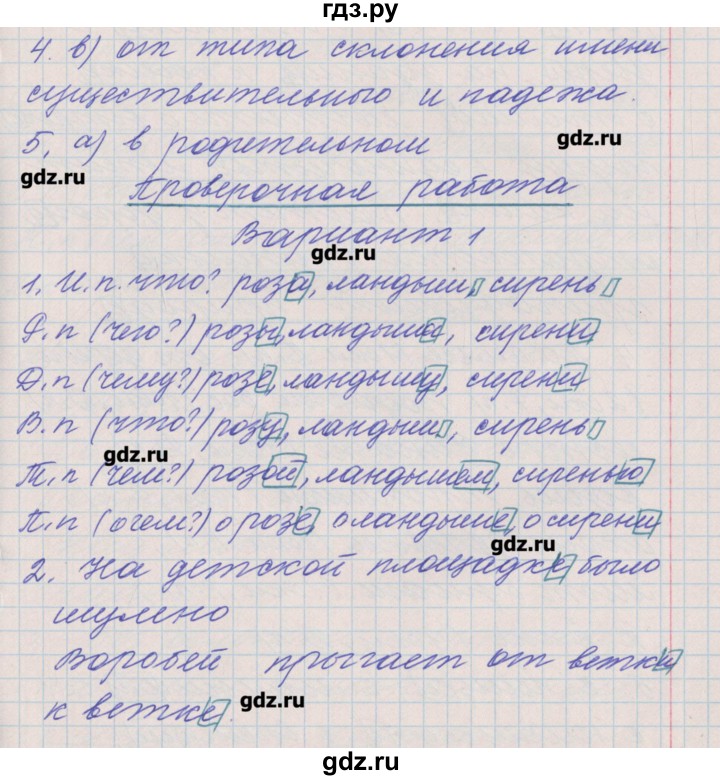 гдз.ру
4. в) от типа склонения имени
существительного и падежа.
5, а) в родительном
gdz.ru
gdz.ru
Проверочная работа
Вариант 1
gdz.ru
1. И.п. что? роза, ландыш, сирень
Р.п (чего?) розы, ландыша, сирени
Д.п (чему?) розе, ландышу, сирени
В.п (что?) розу, ландыш, сирень
gdz.ru
Т.п (чем?) розой, ландышем, сиренью
П.п (о чем?) о розе, о ландыше, о сирени
gdz.ru
2. На детской площадке было
шумно
Воробей прыгает от ветки
к ветке.
gdz.ru
gdz.ru